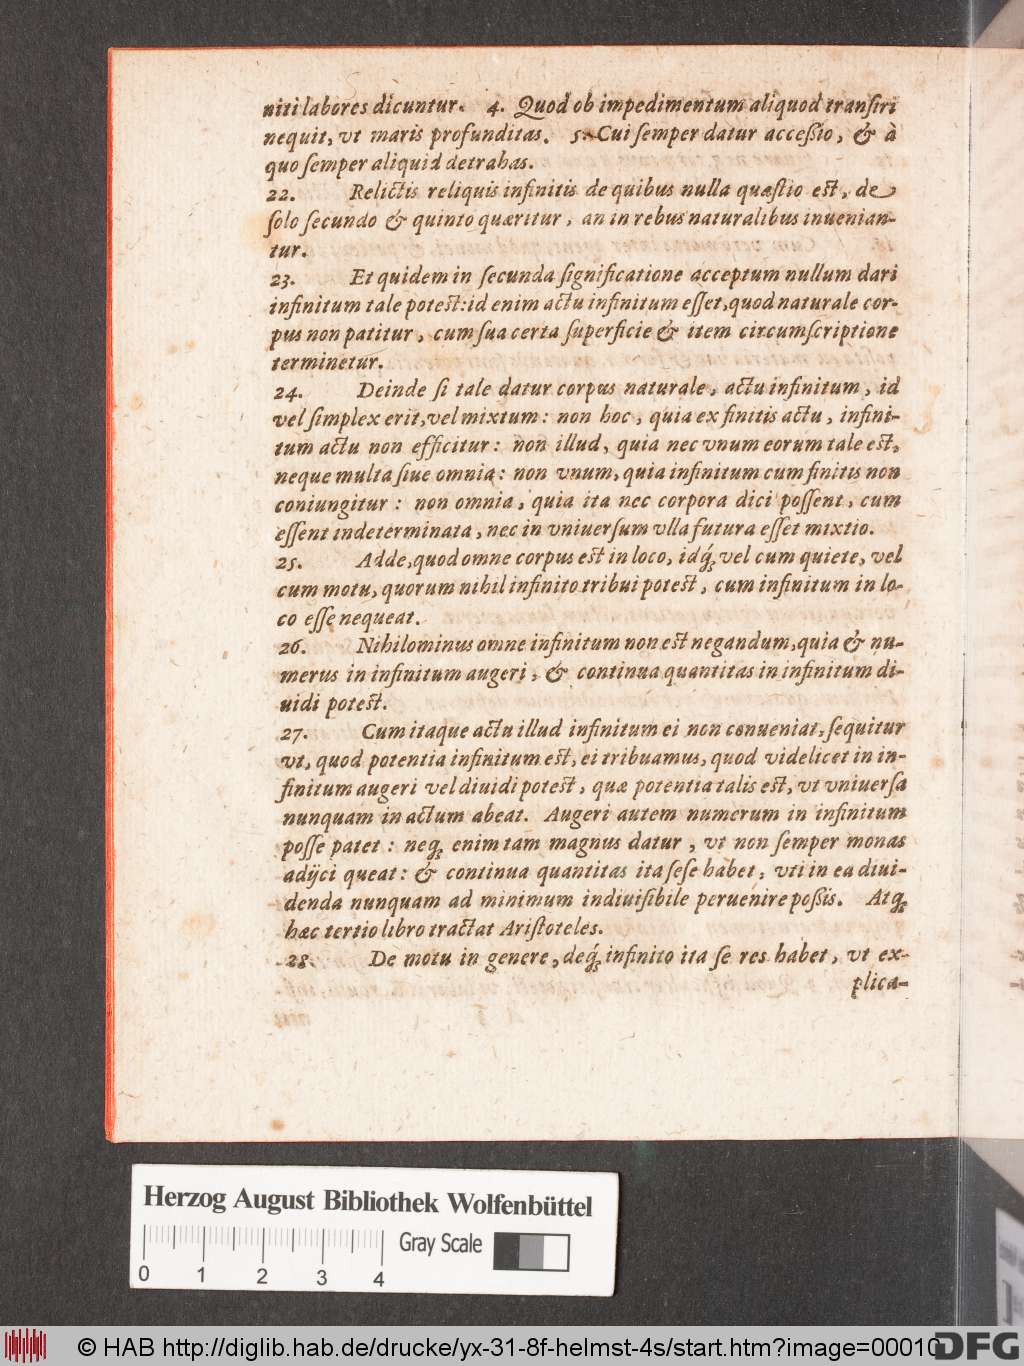 niti labores dicuntur. 4. Quod ob impedimentum aliquod transiri
nequit, vt maris profunditas. 5. Cui semper datur accessio, & à
quo semper aliquid detrahas.
22. Relictis reliquis infinitis de quibus nulla quæstio est, de
solo secundo & quinto quæritur, an in rebus naturalibus inuenian-
tur.
23. Et quidem in secunda significatione acceptum nullum dari
infinitum tale potest: id enim actu infinitum esset, quod naturale cor-
pus non patitur, cum sua certa superficie & item circumscriptione
terminetur.
24. Deinde si tale datur corpus naturale, actu infinitum, id
vel simplex erit, vel mixtum: non hoc, quia ex finitis actu, infini-
tum actu non efficitur: non illud, quia nec vnum eorum tale est,
neque multa siue omnia: non vnum, quia infinitum cum finitis non
coniungitur: non omnia, quia ita nec corpora dici possent, cum
essent indeterminata, nec in vniuersum vlla futura esset mixtio.
25. Adde, quod omne corpus est in loco, idq́; vel cum quiete, vel
cum motu, quorum nihil infinito tribui potest, cum infinitum in lo-
co esse nequeat.
26. Nihilominus omne infinitum non est negandum, quia & nu-
merus in infinitum augeri, & continua quantitas in infinitum di-
uidi potest.
27. Cum itaque actu illud infinitum ei non conueniat, sequitur
vt, quod potentia infinitum est, ei tribuamus, quod videlicet in in-
finitum augeri vel diuidi potest, quæ potentia talis est, vt vniuersa
nunquam in actum abeat. Augeri autem numerum in infinitum
posse patet: neq; enim tam magnus datur, vt non semper monas
adijci queat: & continua quantitas ita sese habet, vti in ea diui-
denda nunquam ad minimum indiuisibile peruenire possis. Atq;
hæc tertio libro tractat Aristoteles.
28. De motu in genere, deq́; infinito ita se res habet, vt ex-
plica-
Herzog August Bibliothek Wolfenbüttel
Gray Scale
0 1 2 3 4
© HAB http://diglib.hab.de/drucke/yx-31-8f-helmst-4s/start.htm?image=00010
DFG